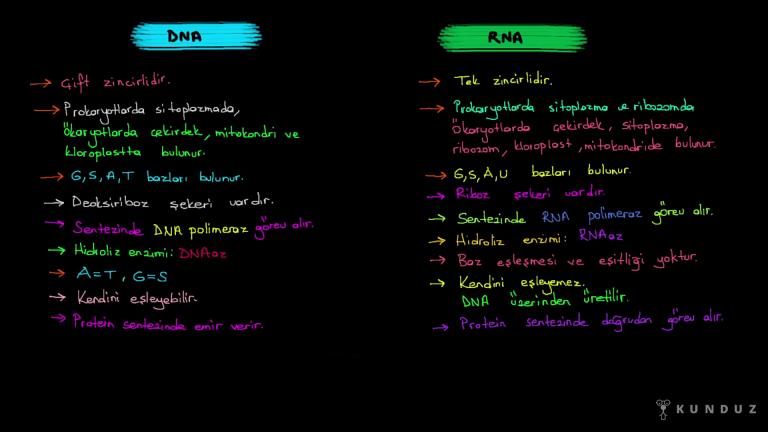 DNA
→ Çift zincirlidir.
→ Prokaryotlarda sitoplazmada,
Ökaryotlarda çekirdek, mitokondri ve
kloroplastta bulunur.
→ G, S, A, T bazları bulunur.
→ Deoksiriboz şekeri vardır.
→ Sentezinde DNA polimeraz görev alır.
→ Hidroliz enzimi: DNAaz
→ A=T, G=S
→ Kendini eşleyebilir.
→ Protein sentezinde emir verir.
RNA
→ Tek zincirlidir.
→ Prokaryotlarda sitoplazma ve ribozomda
Ökaryotlarda çekirdek, sitoplazma,
ribozom, kloroplast, mitokondride bulunur.
→ G, S, A, U bazları bulunur.
→ Riboz şekeri vardır.
→ Sentezinde RNA polimeraz görev alır.
→ Hidroliz enzimi: RNAaz
→ Baz eşleşmesi ve eşitliği yoktur.
→ Kendini eşleyemez.
DNA üzerinden üretilir.
→ Protein sentezinde doğrudan görev alır.
KUNDUZ